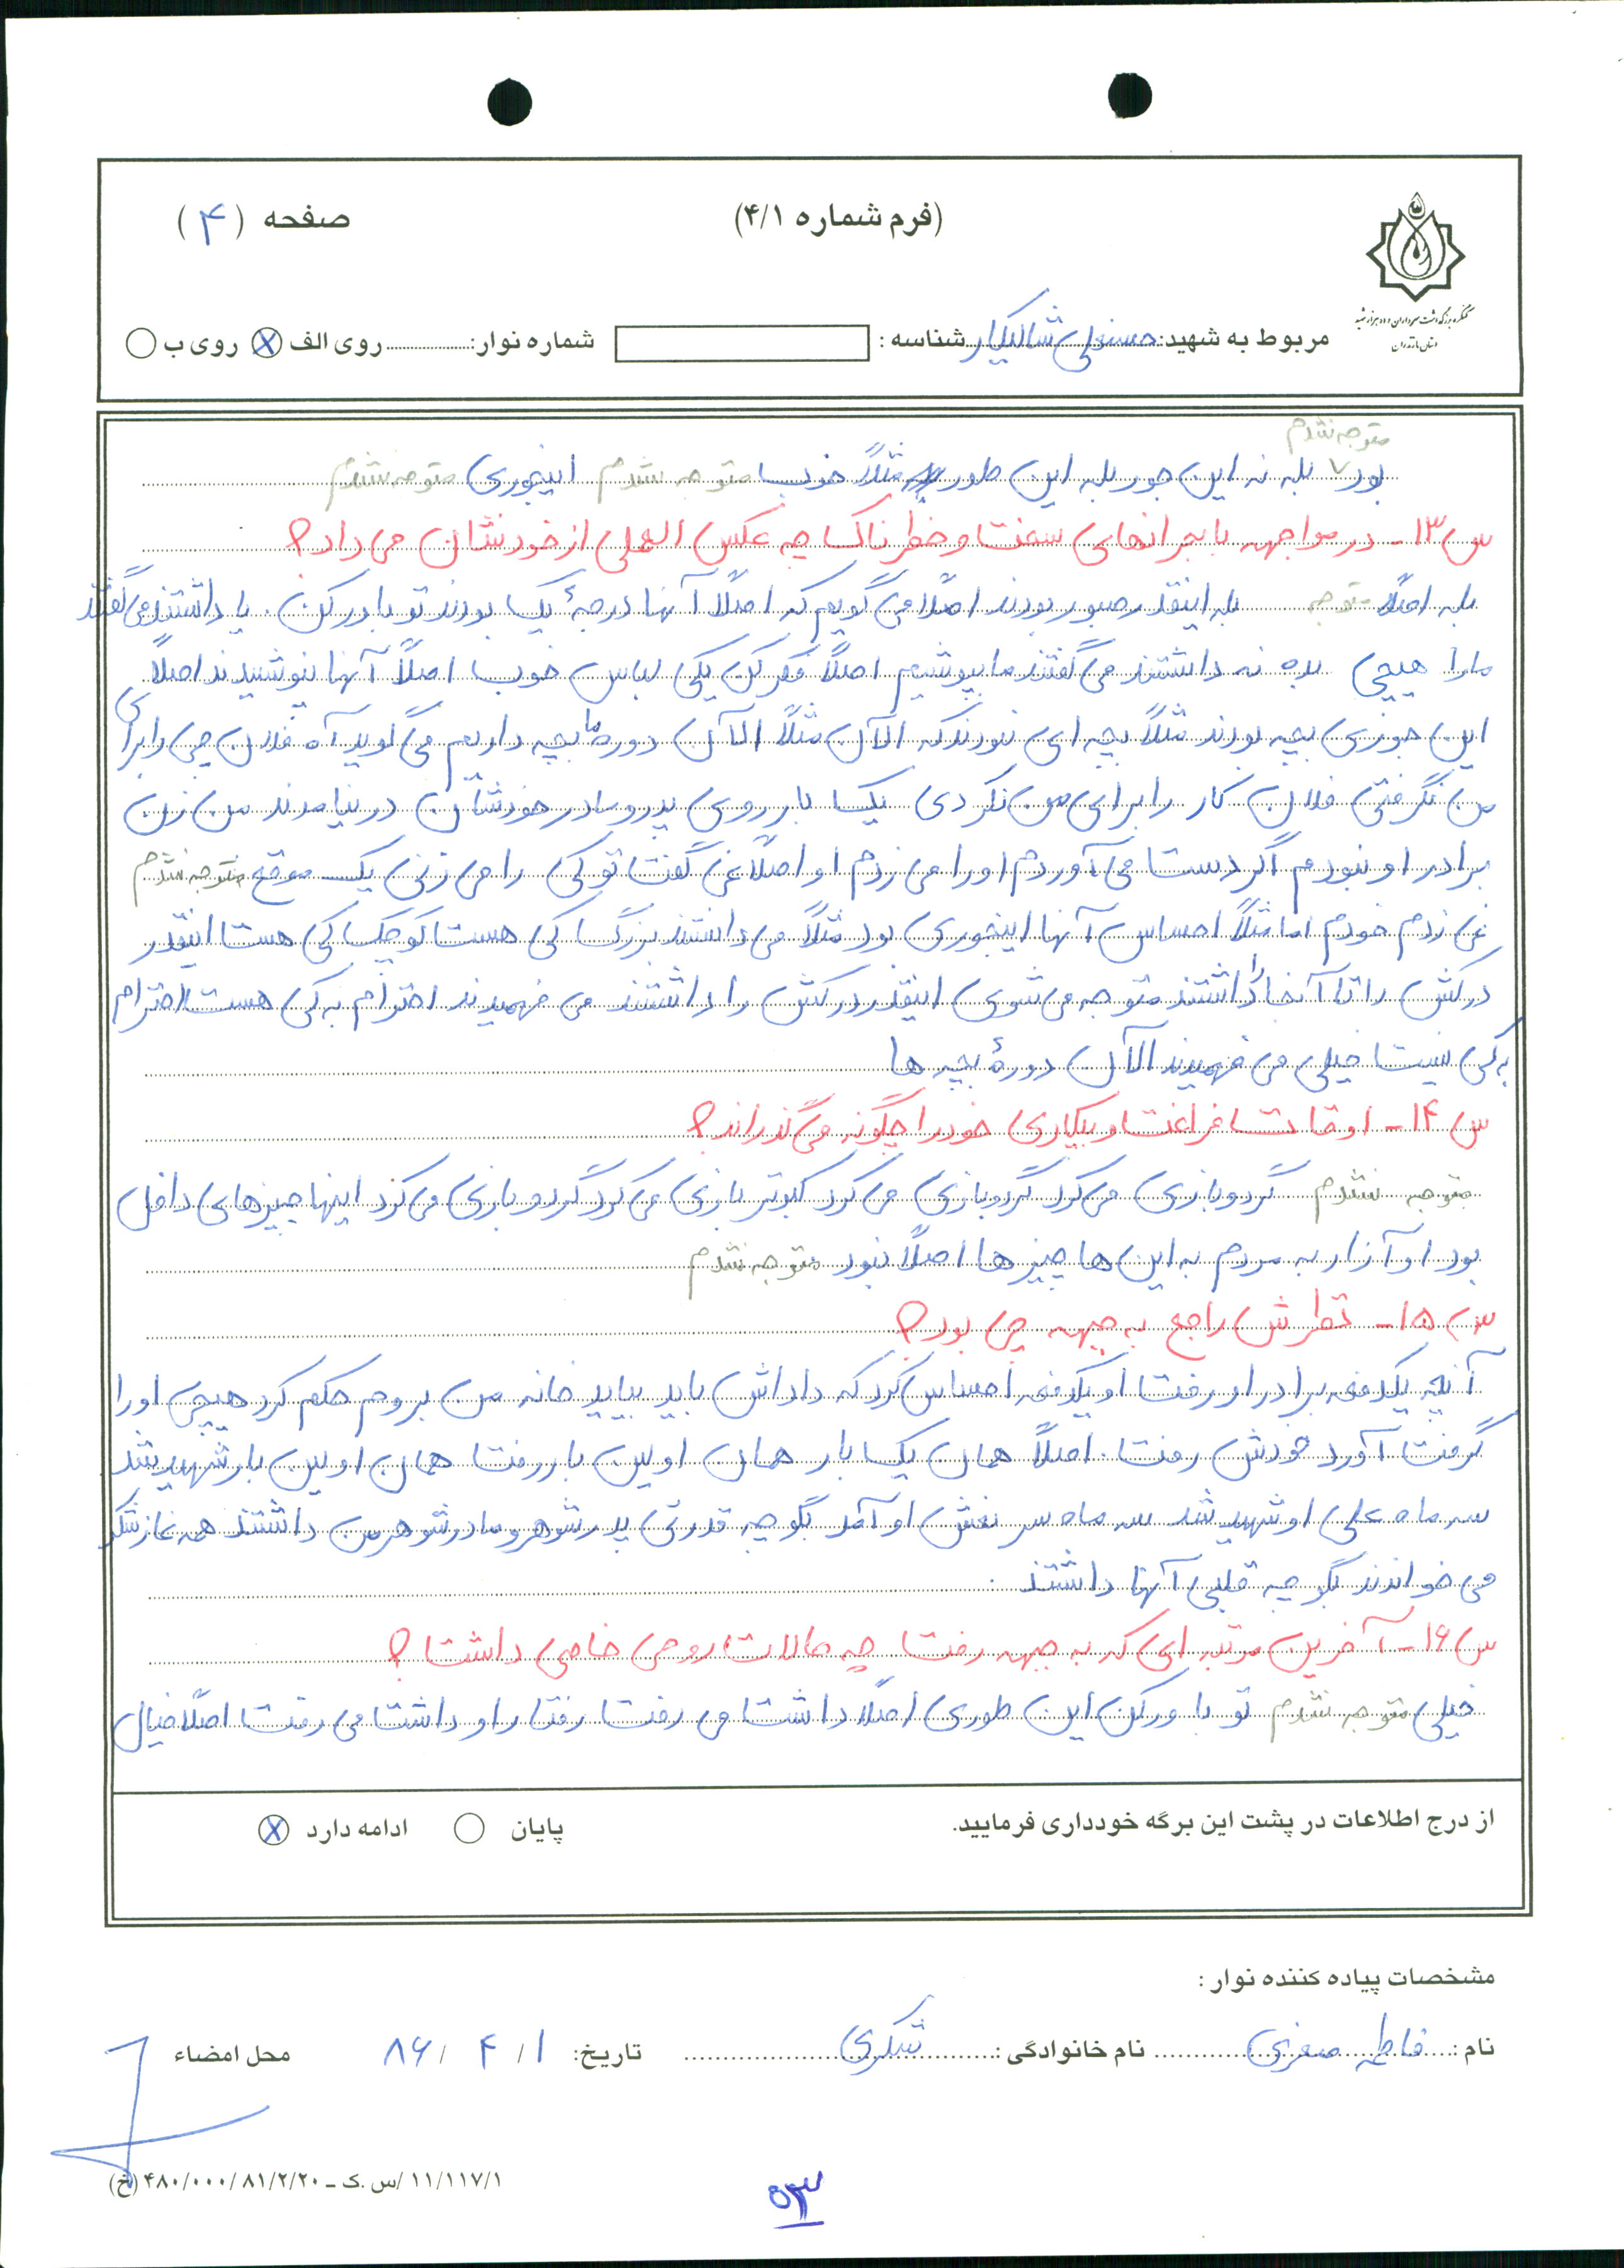 (فرم شماره ۴/۱)
صفحه (۴)
کنگره بزرگداشت سرداران و ده هزار شهید
استان مازندران
مربوط به شهید: حسنعلی شالیکار شناسه : شماره نوار: روی الف ⊗ روی ب ○
متوجه نشدم
بود ۷ بله نه این جور بله این طور مثلاً خوب متوجه نشدم اینجوری متوجه نشدم
س۱۳- در مواجهه با بحرانهای سخت و خطرناک چه عکس العملی از خود نشان می داد؟
بله اصلاً متوجه بله اینقدر صبور بودند اصلاً می گویم که اصلاً آنها درجهٔ یک بودند تو باور کن. یا داشتند می گفتند
ما را هیچی بده نه داشتند می گفتند ما بپوشیم اصلاً فکر کن یکی لباس خوب اصلاً آنها نپوشیدند اصلاً
این جوری بچه بودند مثلاً بچه ای نبودند که الآن مثلاً الآن دوره ما بچه داریم می گوید آه فلان چی را برای
من نگرفتی فلان کار را برای من نکردی یک بار روی پدر و مادر خودشان در نیامدند من زن
برادر او نبودم اگر دست می آوردم او را می زدم او اصلاً نمی گفت تو کی را می زنی یک موقع متوجه نشدم
نمی زدم خودم اما مثلاً احساس آنها اینجوری بود مثلاً می دانستند بزرگ کی هست کوچک کی هست اینقدر
درکش را تا آنجا داشتند متوجه می شوی اینقدر درکش را داشتند می فهمیدند احترام به کی هست احترام
به کی نیست خیلی می فهمیدند الآن دورهٔ بچه ها
س۱۴- اوقات فراغت و بیکاری خود را چگونه می گذراند؟
متوجه نشدم گردوبازی می کرد گردوبازی می کرد کبوتر بازی می کرد گردو بازی می کرد اینها چیزهای داخل
بود او آزار به مردم به این ها چیز ها اصلاً نبود متوجه نشدم
س۱۵- نظرش راجع به جبهه چی بود؟
آنچه یکدفعه برادر او رفت او یکدفعه احساس کرد که داداش باید بیاید خانه من بروم حکم کرد هیچی او را
گرفت آورد خودش رفت. اصلاً همان یک بار همان اولین بار رفت همان اولین بار شهید شد
سه ماه علی او شهید شد سه ماه سر نعش او آمد بگو چه قدرتی پدرشوهر و مادرشوهر من داشتند همه نماز شکر
می خواندند بگو چه قلبی آنها داشتند .
س۱۶- آخرین مرتبه ای که به جبهه رفت چه حالات روحی خاصی داشت؟
خیلی متوجه نشدم تو باور کن این طوری اصلاً داشت می رفت رفتار او داشت می رفت اصلاً خیال
از درج اطلاعات در پشت این برگه خودداری فرمایید.
پایان ○ ادامه دارد ⊗
مشخصات پیاده کننده نوار :
نام : فاطمه صغری نام خانوادگی : شکری تاریخ: ۱ / ۴ / ۸۶ محل امضاء
۱۱/۱۱۷/۱ /س .ک ـ ۴۸۰/۰۰۰/۸۱/۲/۲۰ (خ)
۵۳